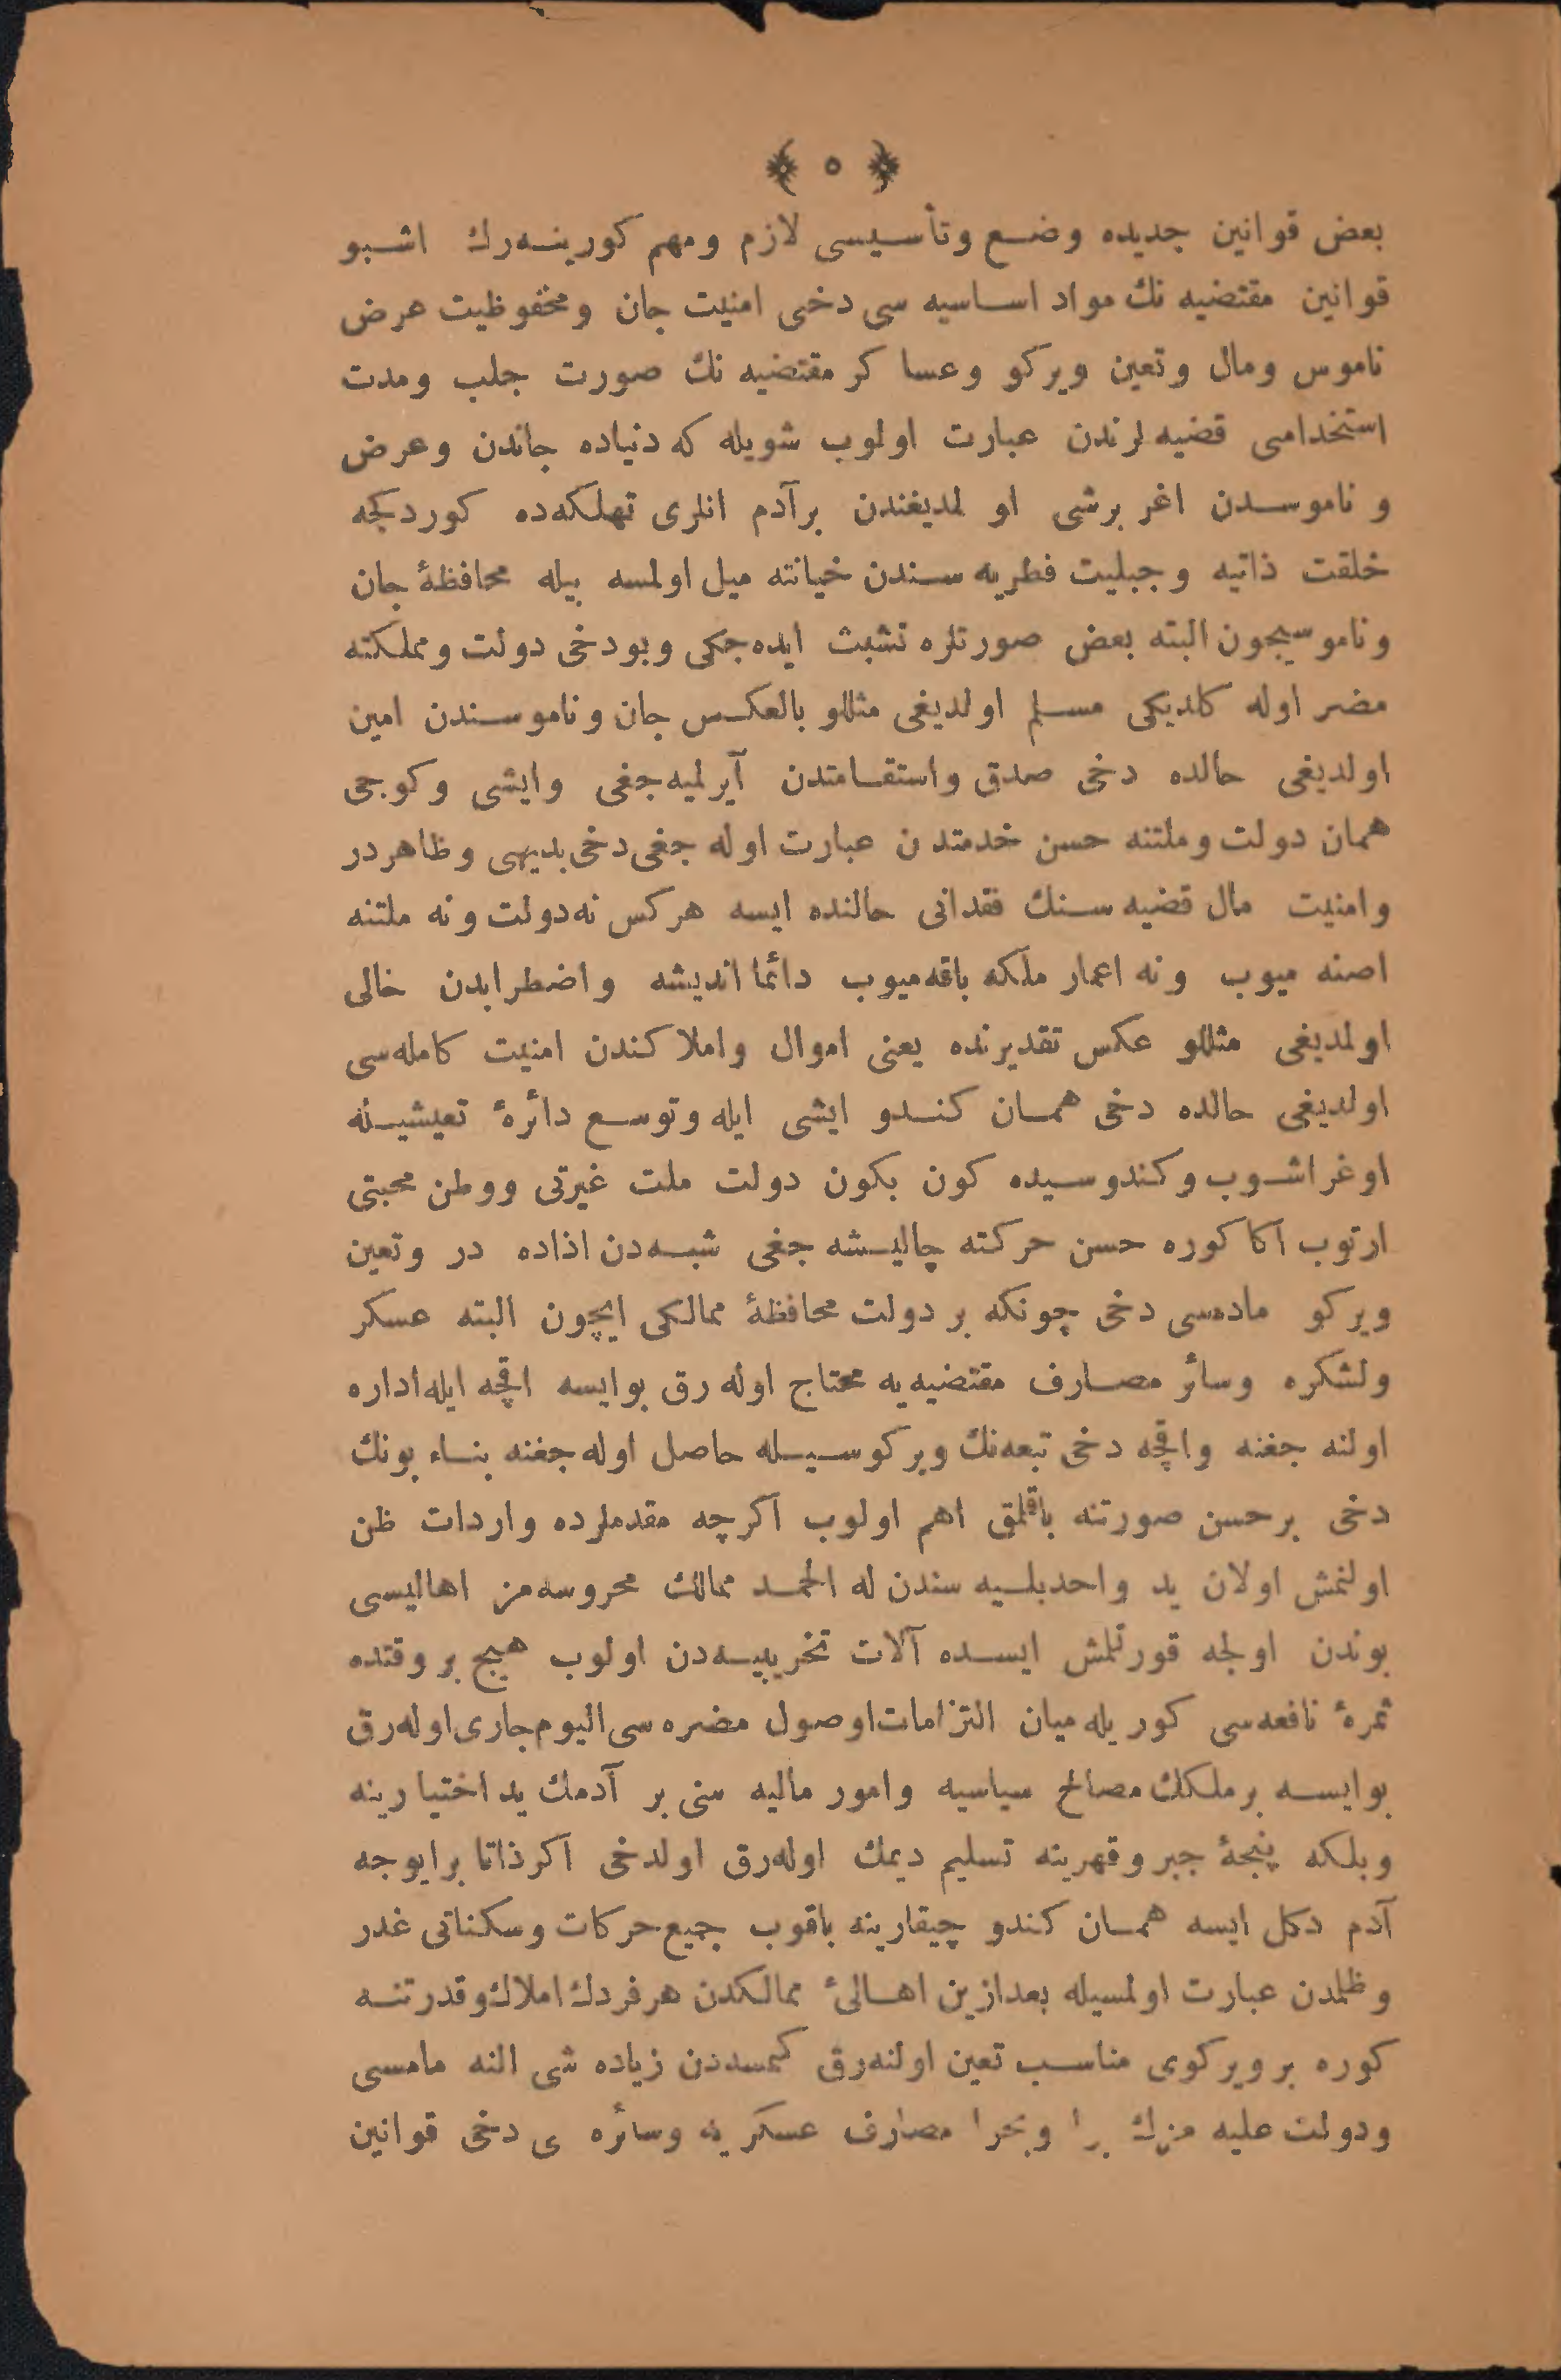 ﴿ ٥ ﴾
بعض قوانین جدیده وضع وتأسیسی لازم ومهم کورینه‌رك اشبو
قوانین مقتضیه نك مواد اساسیه سی دخی امنیت جان ومحفوظیت عرض
ناموس ومال وتعین ویرکو وعسا کر مقتضیه نك صورت جلب ومدت
استخدامی قضیه لرندن عبارت اولوب شویله که دنیاده جاندن وعرض
و ناموسدن اغر برشی او لمدیغندن برآدم انلری تهلکه‌ده کوردکجه
خلقت ذاتیه وجبلیت فطریه سندن خیانته میل اولمسه بیله محافظهٔ جان
وناموسیچون البته بعض صورتلره تشبث ایده‌جکی وبودخی دولت ومملکته
مضر اوله کلدیکی مسلم اولدیغی مثللو بالعکس جان وناموسندن امین
اولدیغی حالده دخی صدق واستقامتدن آیرلمیه‌جغی وایشی وکوجی
همان دولت وملتنه حسن خدمتدن عبارت اوله جغی دخی بدیهی وظاهردر
وامنیت مال قضیه سنك فقدانی حالنده ایسه هرکس نه دولت ونه ملتنه
اصنه میوب ونه اعمار ملکه باقه‌میوب دائما اندیشه واضطرابدن خالی
اولمدیغی مثللو عکس تقدیرنده یعنی اموال واملا کندن امنیت کامله‌سی
اولدیغی حالده دخی همان کندو ایشی ایله وتوسع دائرهٔ تعیشیله
اوغراشوب وکندوسیده کون بکون دولت ملت غیرتی ووطن محبتی
ارتوب اکا کوره حسن حرکته چالیشه جغی شبه‌دن اذاده در وتعین
ویرکو ماده‌سی دخی چونکه بر دولت محافظهٔ ممالکی ایچون البته عسکر
ولشکره وسائر مصارف مقتضیه‌یه محتاج اوله رق بوایسه اقچه ایله اداره
اولنه جغنه واقچه دخی تبعه‌نك ویرکوسیله حاصل اوله جغنه بناء بونك
دخی برحسن صورتنه باقلمق اهم اولوب اکرچه مقدملرده واردات ظن
اولنمش اولان ید واحدبلیه سندن له الحمد ممالك محروسه‌مز اهالیسی
بوندن اولجه قورتلمش ایسده آلات تخریبیه‌دن اولوب هیچ بر وقتده
ثمرهٔ نافعه‌سی کوریله میان التزامات اوصول مضره‌سی الیوم جاری اوله‌رق
بوایسه برملکك مصالح سیاسیه وامور مالیه سنی بر آدمك ید اختیارینه
وبلکه پنجهٔ جبر وقهرینه تسلیم دیمك اوله‌رق اولدخی اکر ذاتا برایوجه
آدم دکل ایسه همان کندو چیقارینه باقوب جمیع حرکات وسکناتی غدر
وظلمدن عبارت اولمسیله بعدازین اهالیٔ ممالکدن هرفردك املاك وقدرتنه
کوره بر ویرکوی مناسب تعین اولنه‌رق کیمسه‌دن زیاده شی النه مامسی
ودولت علیه مزك برا وبحرا مصارف عسکریه وسائره ی دخی قوانین